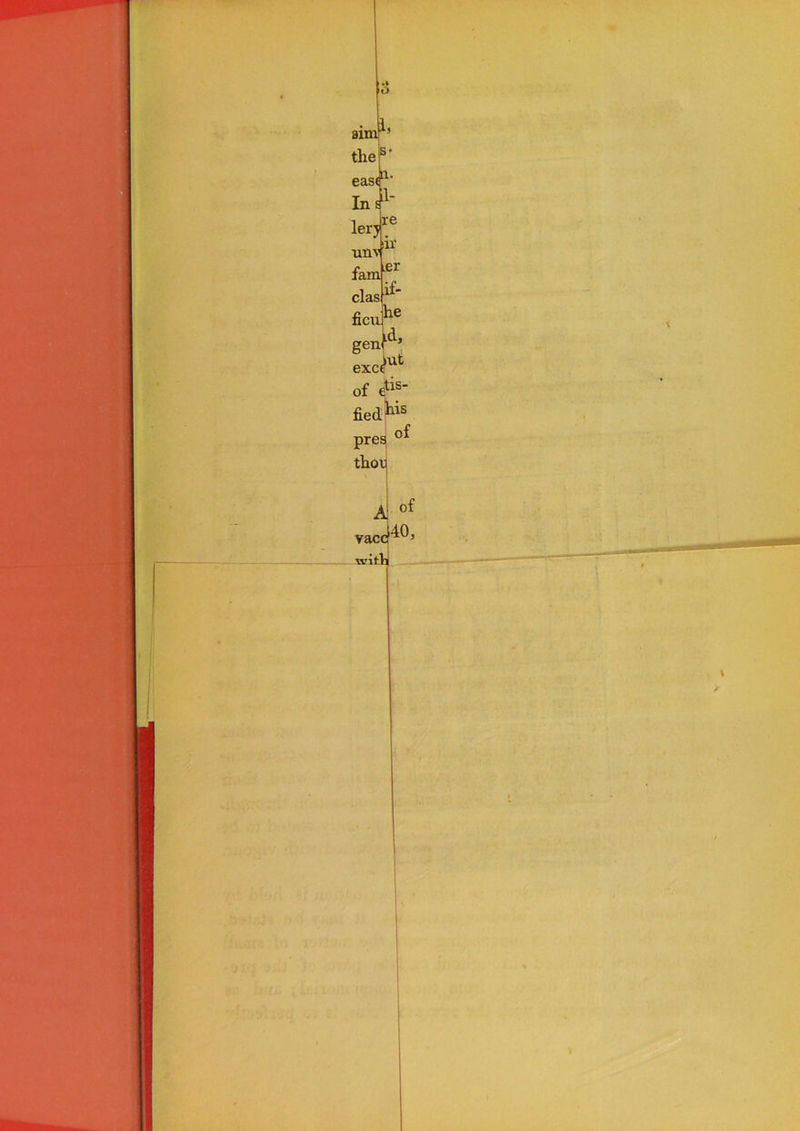 sim l,
the s.
ease n.
In s il-
lery re
unv ir
fam er
clas if-
ficul he
gen d,
exce ut
of e tis-
fied his
pres of
thou
A of
vacc 40,
with